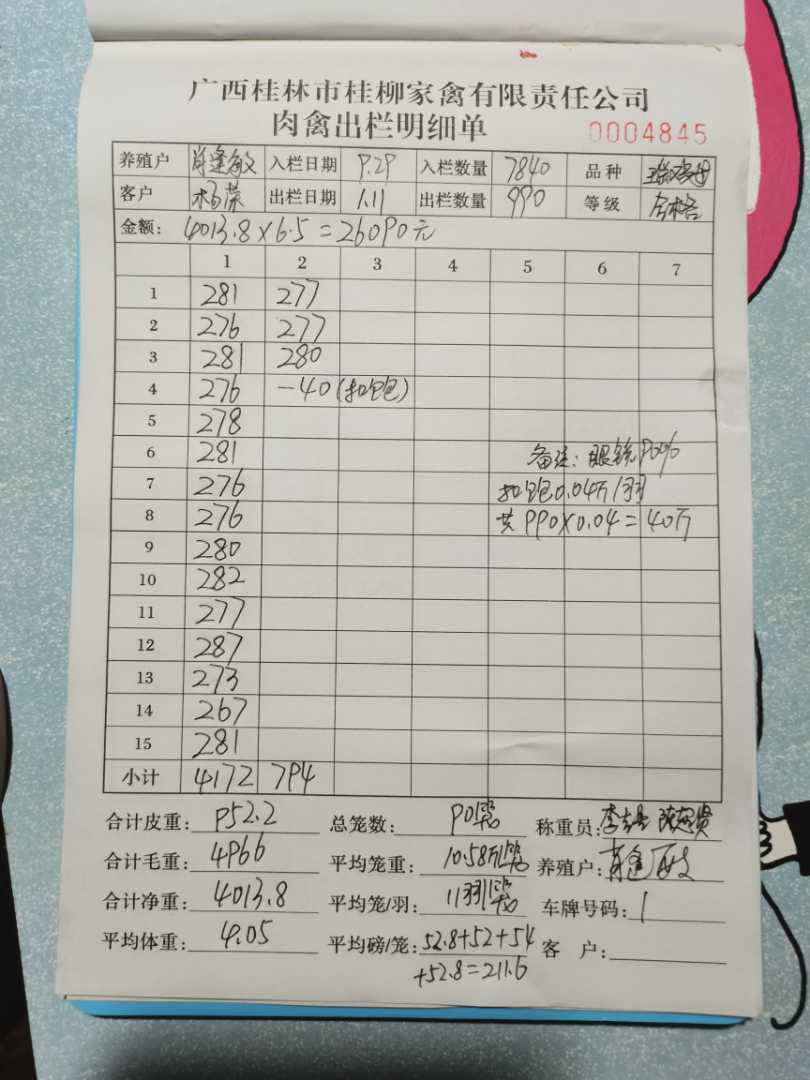 广西桂林市桂柳家禽有限责任公司
肉禽出栏明细单 0004845
养殖户 肖逢敏 入栏日期 9.29 入栏数量 7840 品种
客户 杨荣 出栏日期 1.11 出栏数量 990 等级 合格
金额: 4013.8×6.5=26090元
1 2 3 4 5 6 7
1 281 277
2 276 277
3 281 280
4 276 -40(扣饱)
5 278
6 281 备注: 眼 90%
7 276 扣饱0.04斤/羽
8 276 共990×0.04=40斤
9 280
10 282
11 277
12 287
13 273
14 267
15 281
小计 4172 794
合计皮重: 952.2 总笼数: 90笼 称重员:
合计毛重: 4966 平均笼重: 10.58斤/笼 养殖户: 肖逢敏
合计净重: 4013.8 平均笼/羽: 11羽/笼 车牌号码: 1
平均体重: 4.05 平均磅/笼: 52.8+52+54 客 户:
+52.8=211.6